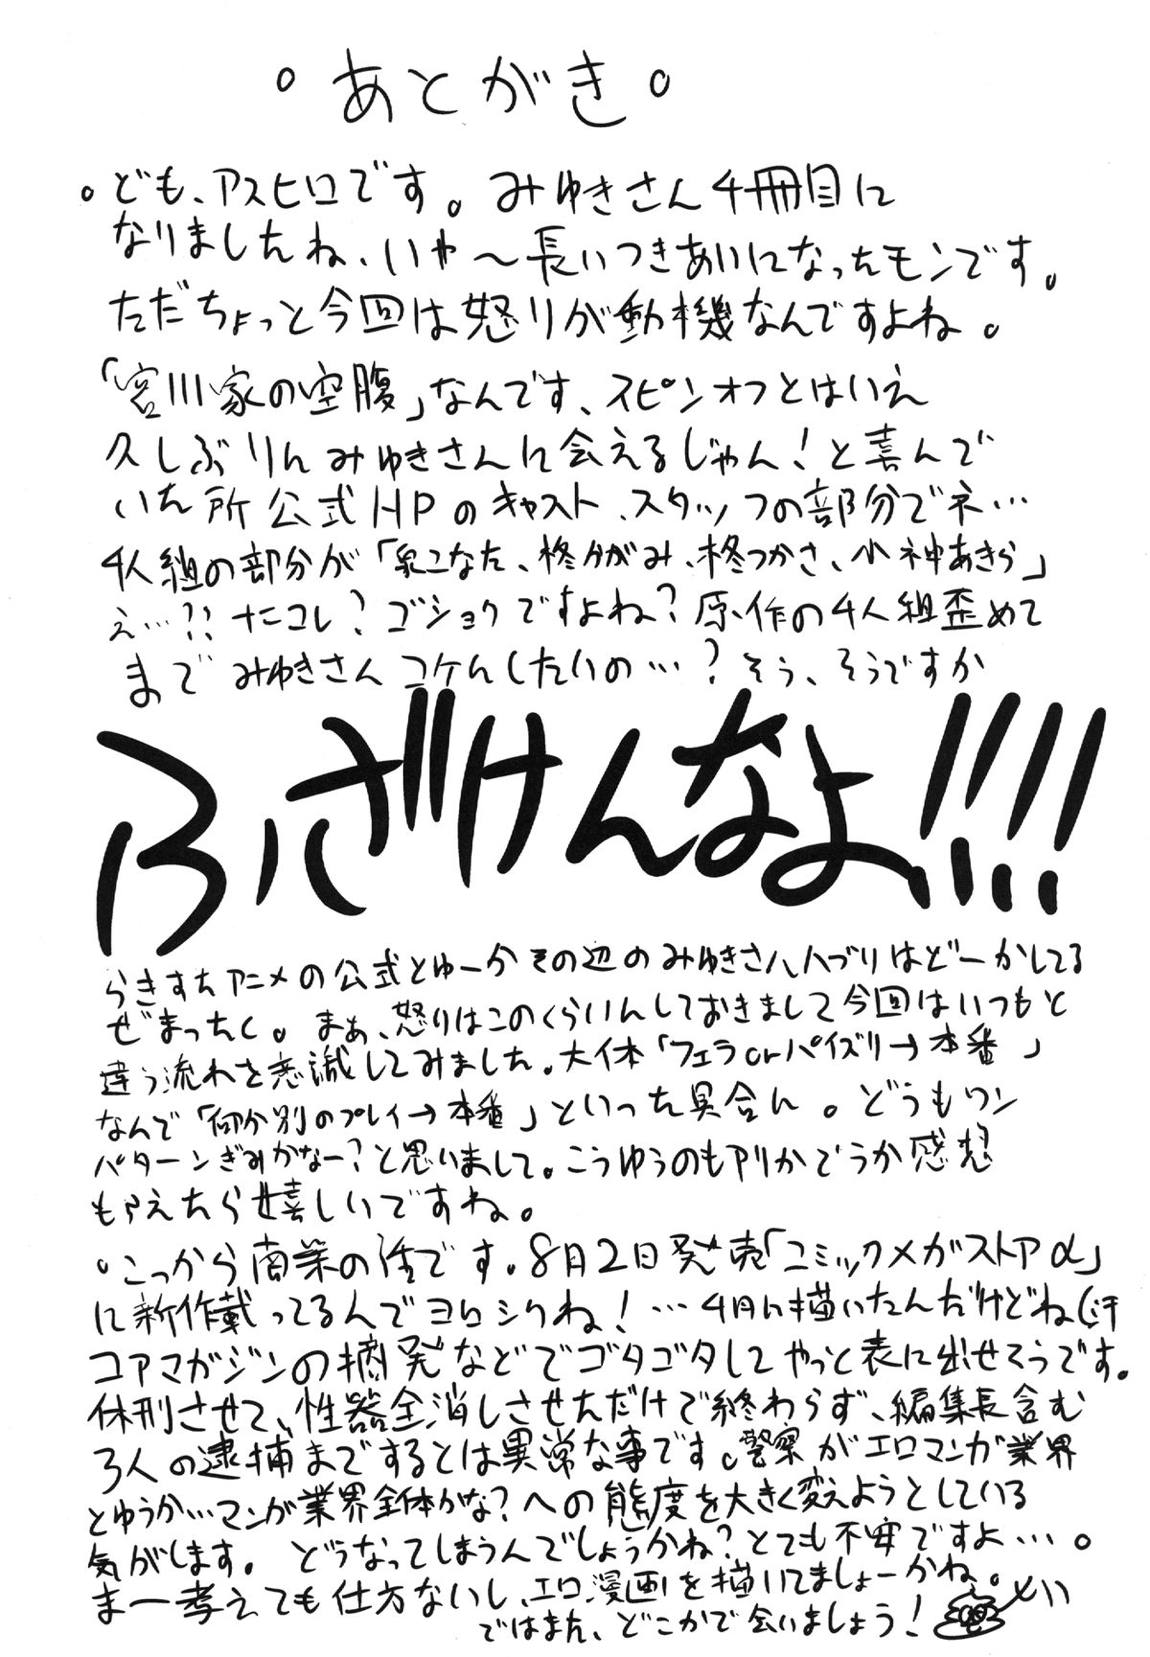 。あとがき。
。ども、アスヒロです。みゆきさん4冊目に
なりましたね、いや〜長いつきあいになったモンです。
ただちょっと今回は怒りが動機なんですよね。
「宮川家の空腹」なんです、スピンオフとはいえ
久しぶりにみゆきさんに会えるじゃん!と喜んで
いた所公式HPのキャスト、スタッフの部分でネ…
4人組の部分が「泉こなた、柊かがみ、柊つかさ、小神あきら」
え…?? ナニコレ? ゴショクですよね? 原作の4人組歪めて
までみゆきさんコケにしたいの…? そう、そうですか
ふざけんなよ!!!!
らきすたアニメの公式とゆーかその辺のみゆきさんハブりはどーかしてる
ぜまったく。まぁ、怒りはこのくらいにしておきまして今回はいつもと
違う流れを意識してみました。大体「フェラorパイズリ→本番」
なんで「何か別のプレイ→本番」といった具合に。どうもワン
パターンぎみかなー?と思いまして。こうゆうのもアリかどうか感想
もらえたら嬉しいですね。
・こっから商業の話です。8月2日発売「コミックメガストアα」
に新作載ってるんでヨロシクね!…4月に描いたんだけどね(汗
コアマガジンの摘発などでゴタゴタしてやっと表に出せそうです。
休刊させて、性器全消しさせただけで終わらず、編集長含む
3人の逮捕までするとは異常な事です。警察がエロマンガ業界
とゆうか…マンガ業界全体かな?への態度を大きく変えようとしている
気がします。どうなってしまうんでしょうかね?とても不安ですよ…。
ま一考えても仕方ないし、エロ漫画を描いてましょーかね。
ではまた、どこかで会いましょう!